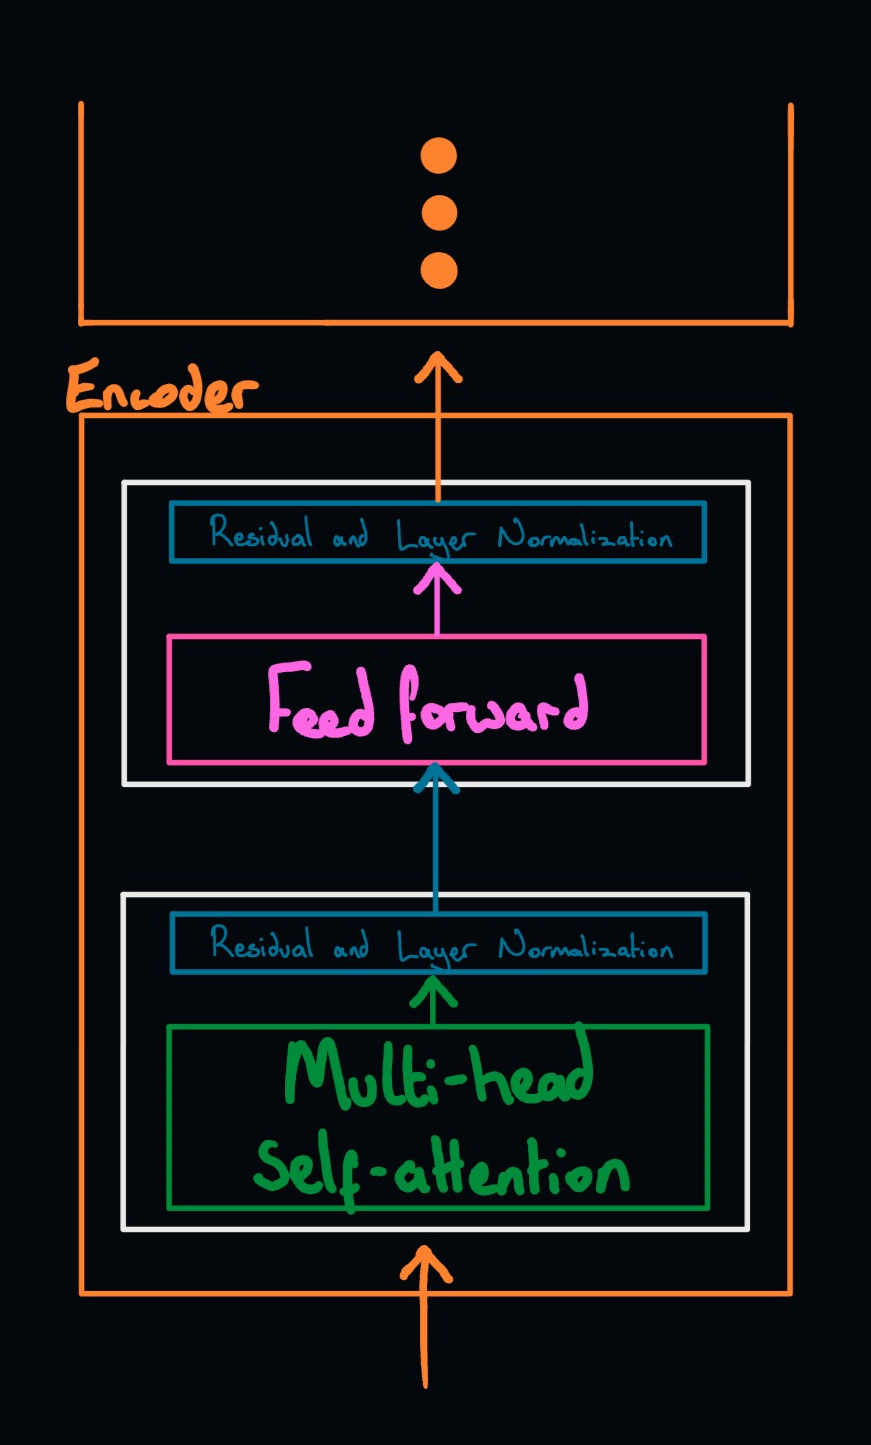 Encoder
Residual and Layer Normalization
Feed forward
Residual and Layer Normalization
Multi-head
Self-attention